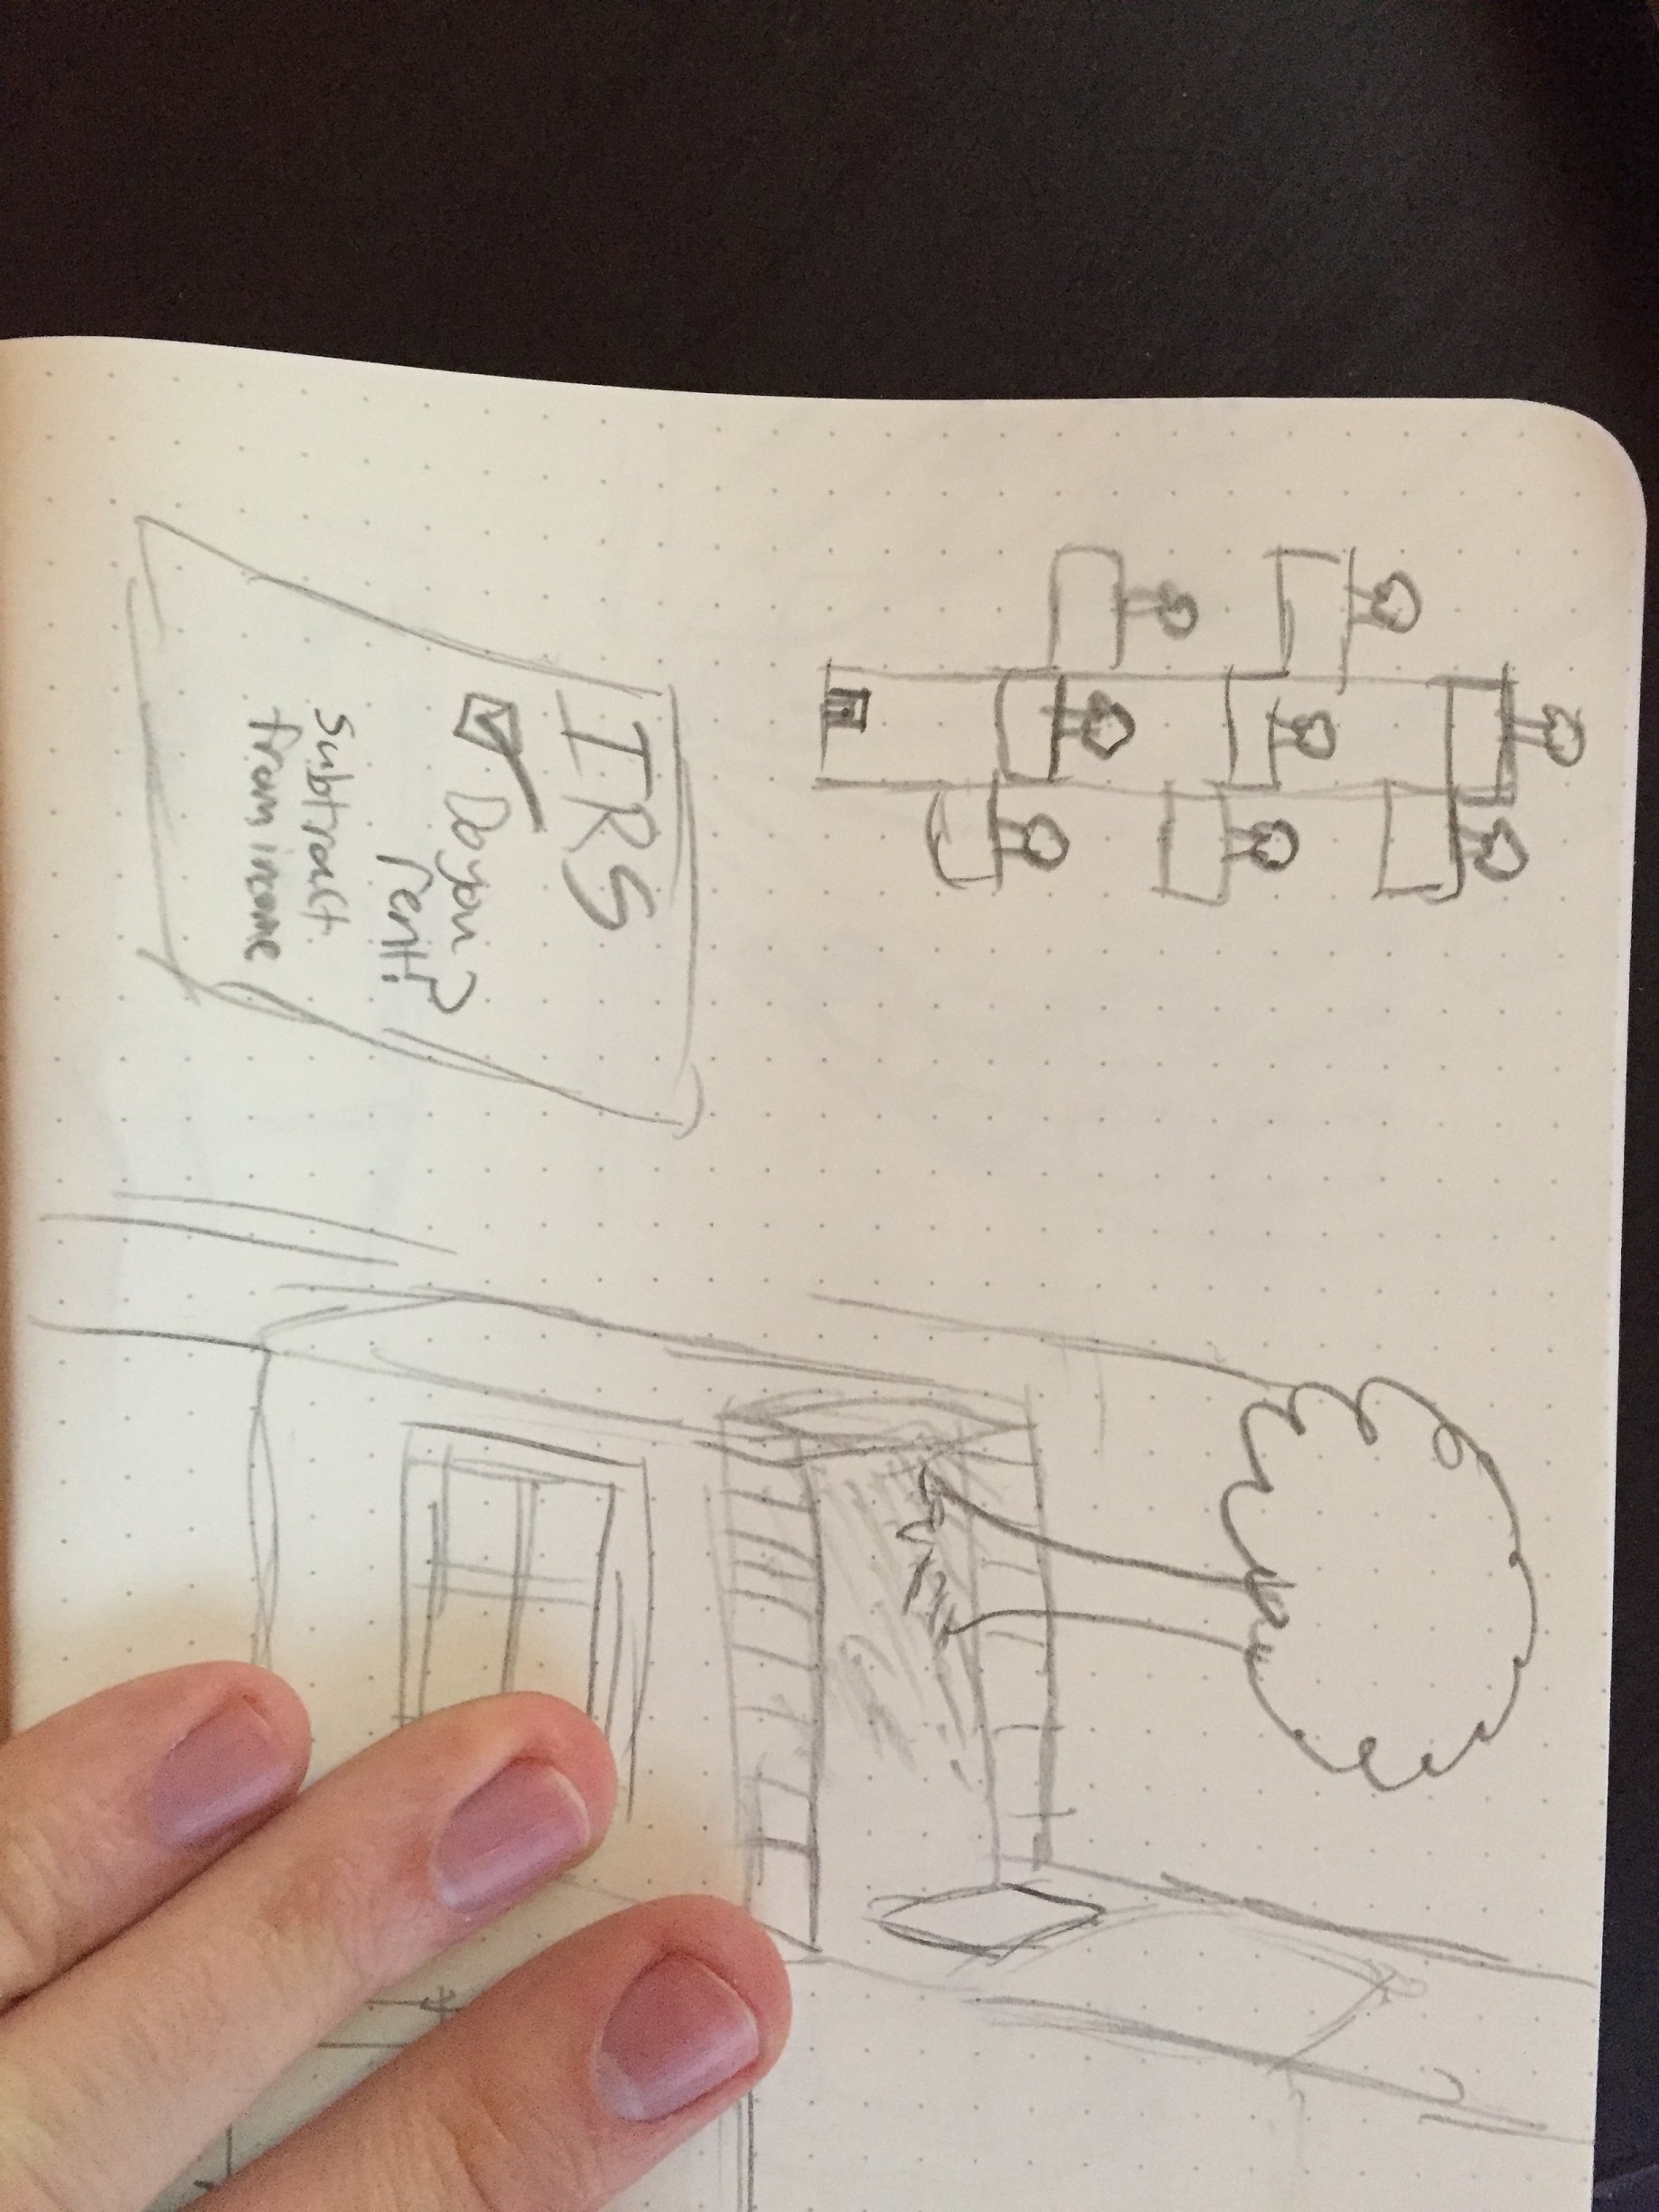 IRS
Do you
rent?
Subtract
from income